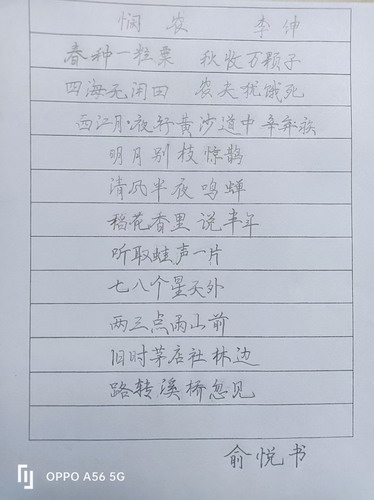 悯农 李仲
春种一粒粟 秋收万颗子
四海无闲田 农夫犹饿死
西江月:夜行黄沙道中 辛弃疾
明月别枝惊鹊
清风半夜鸣蝉
稻花香里说丰年
听取蛙声一片
七八个星天外
两三点雨山前
旧时茅店社林边
路转溪桥忽见
俞悦书
OPPO A56 5G